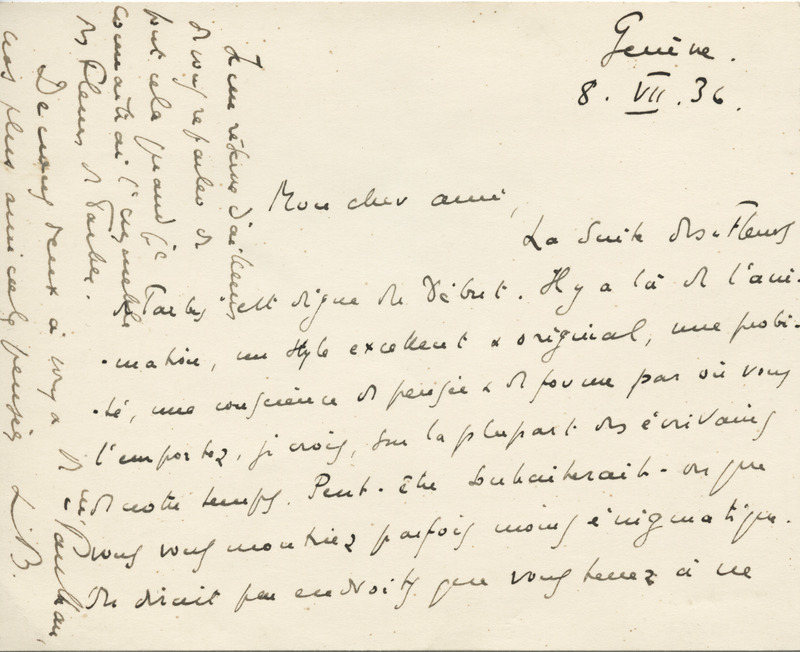 Genève.
8. VII. 36.
Mon cher ami,
La suite des "Fleurs
de Tarbes" est digne du Début. Il y a là de l'ani-
-mation, un style excellent & original, une probi-
-té, une conscience de pensée & de forme par où vous
l'emportez, je crois, sur la plupart des écrivains
de notre temps. Peut-être souhaiterait-on que
vous vous montriez parfois moins énigmatique.
On dirait par endroits que vous tenez à ne
Je me réserve d'ailleurs
de vous reparler de
tout cela quand je
connaîtrai l'ensemble
des Fleurs de Tarbes.
De nous deux à vous & à Me Paulhan,
nos plus amicales pensées
L.B.